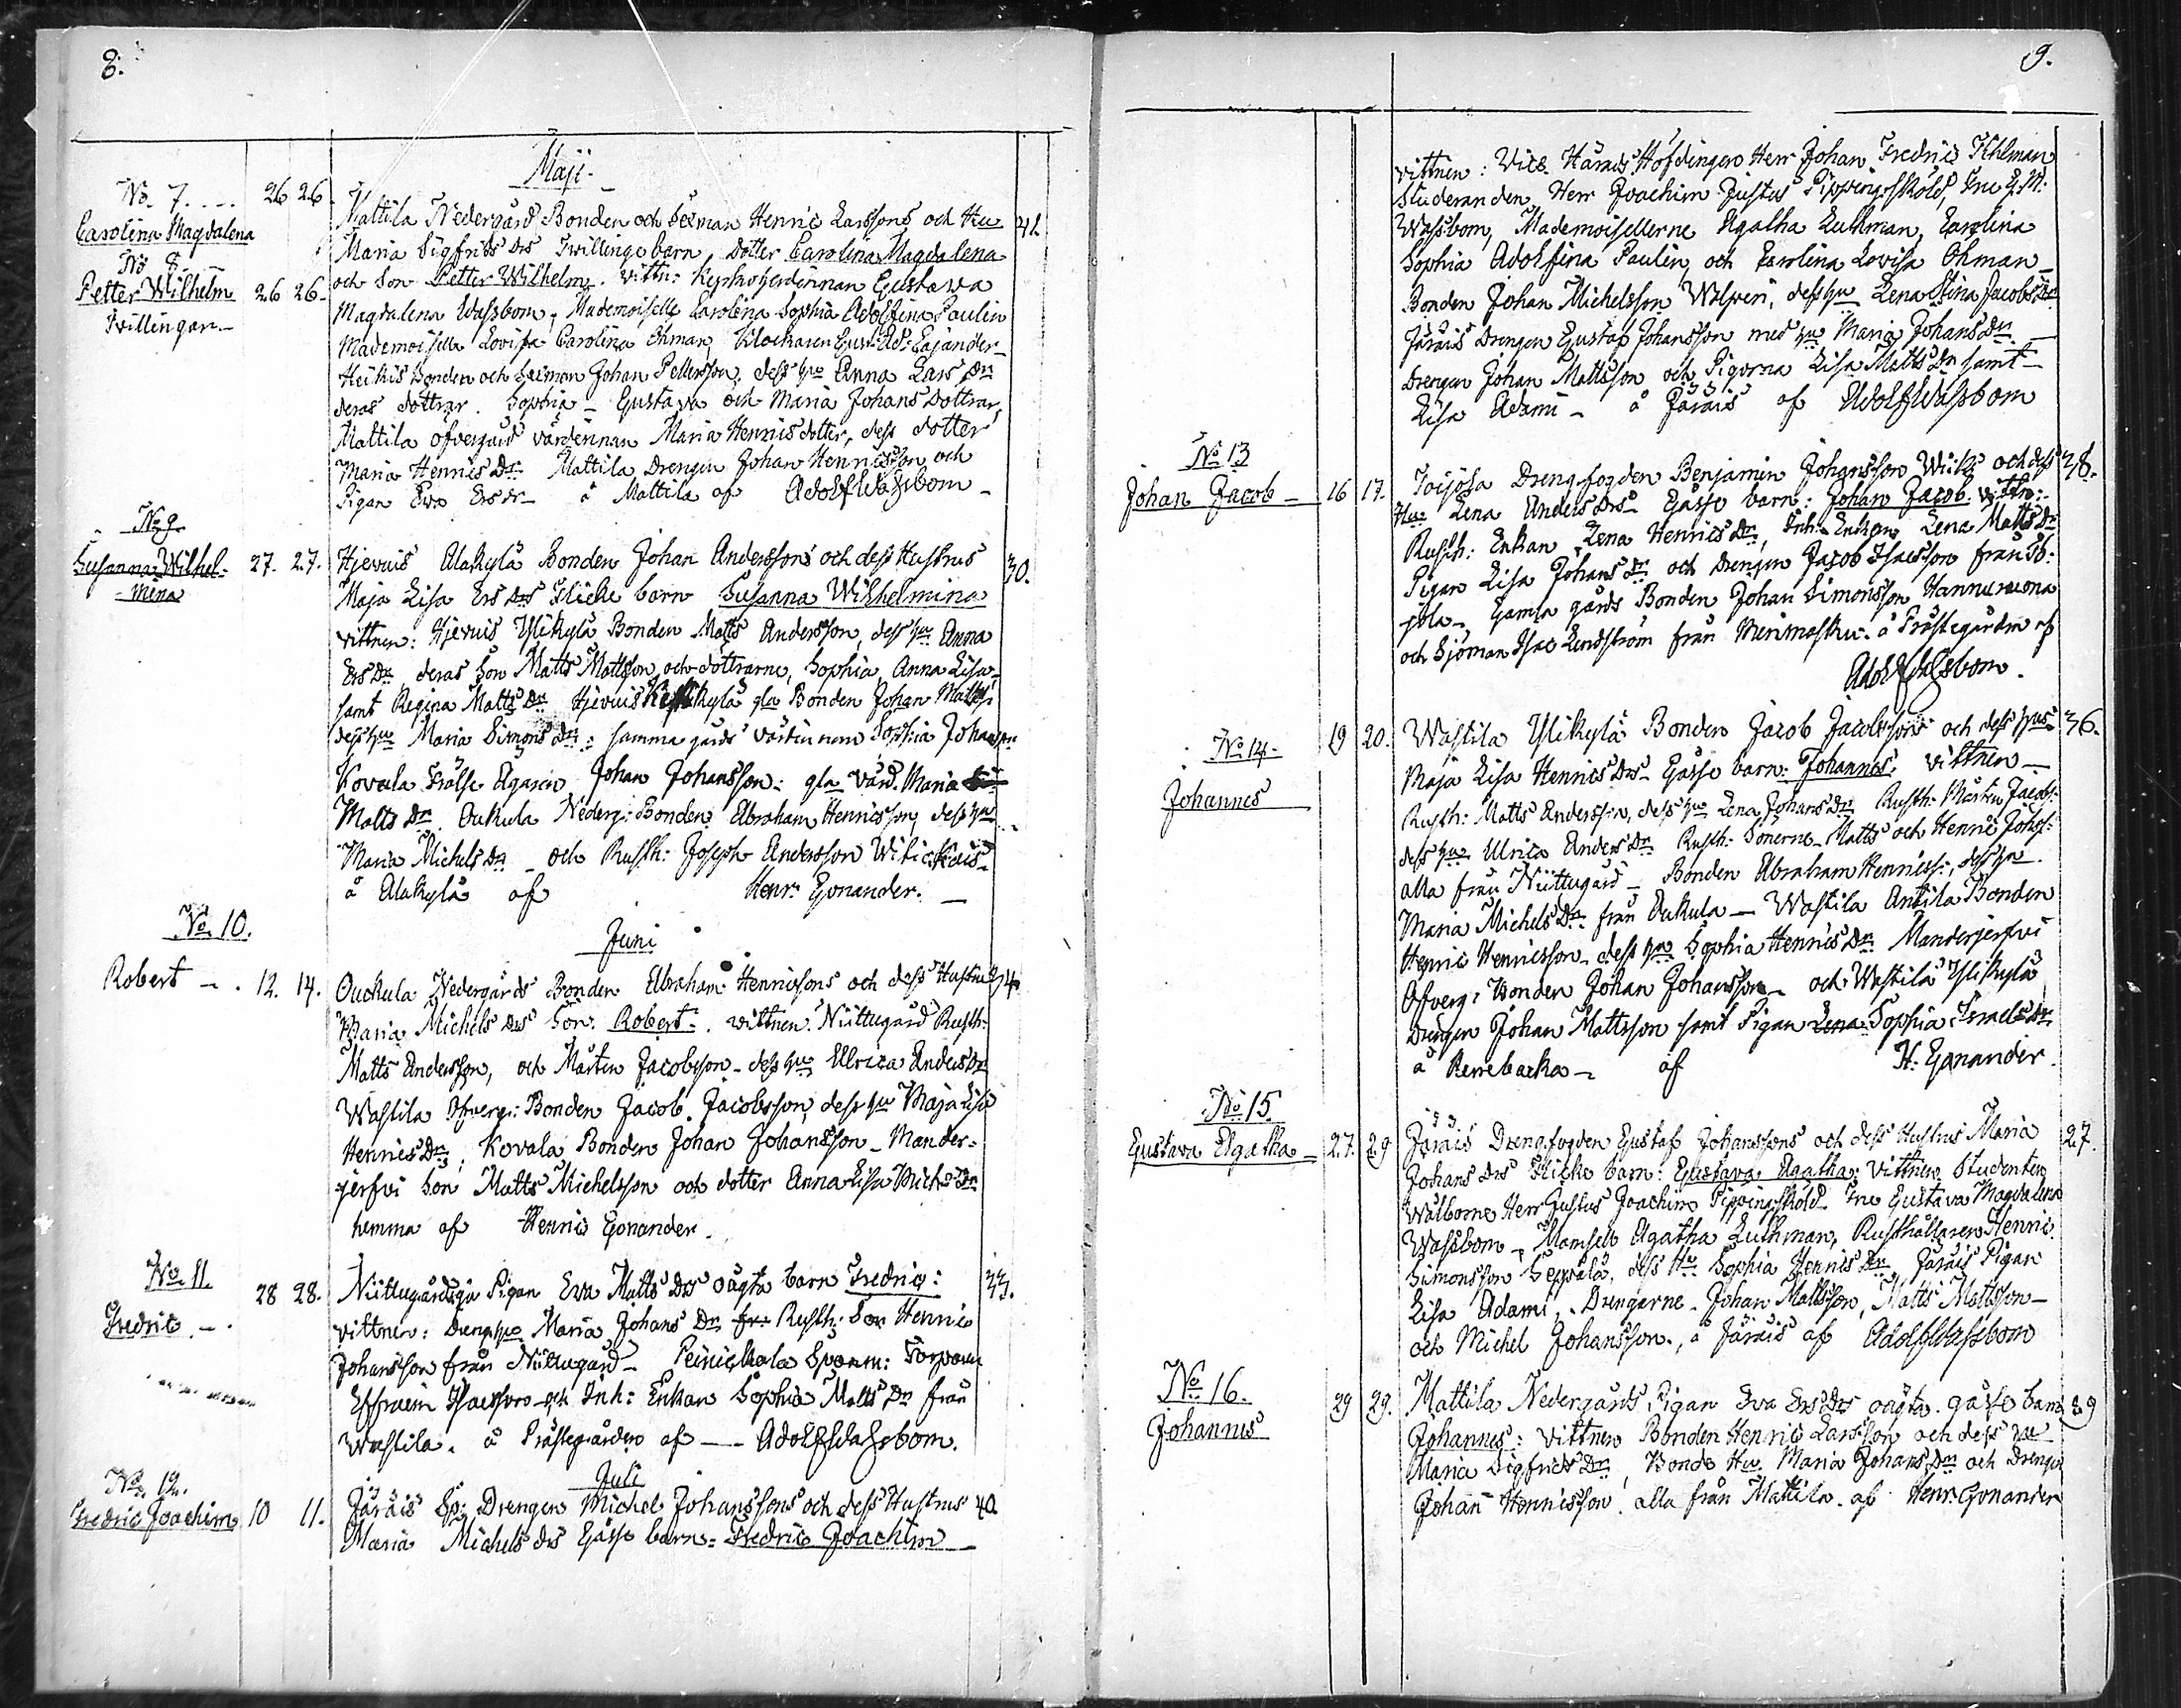 8.
Maji
No. 7. 26 26
Carolina Magdalena
No 8
Petter Wilhelm 26 26
Tvillingar
Mattila Nedergård Bonden och Sexman Henric Larssons och Hu
Maria Sigfrids Drs Tvillinge barn, Dotter Carolina Magdalena
och Son Petter Wilhelm. vittn: Kyrkoherdinnan Gustava
Magdalena Wassbom, Mademoiselle Carolina Sophia Adolfina Paulin
Mademoiselle Lovisa Carolina Öhman, Klockaren Gust: Ad: Cajander
Heikis Bonden och Sexman Johan Pettersson, dess hu Anna Lars Dr
deras döttrar. Sophia - Gustava och Maria Johans Döttrar,
Mattila öfvergård värdinnan Maria Henricsdotter, dess dotter
Maria Henrics Dr. Mattila Drengen Johan Henricsson och
Pigan Eva Ersdr - å Mattila af Adolf Wassbom
No 9
Susanna Wilhel- 27. 27. 30.
mina
Hjervois Alakylä Bonden Johan Anderssons och dess Hustrus
Maja Lisa Ers Drs Flicke barn Susanna Wilhelmina
vittnen: Hjervois Ylikylä Bonden Matts Andersson, dess hu Anna
Ers Dr deras Son Matts Mattsson och döttrarne, Sophia, Anna Lisa
samt Regina Matts Dr Hjervois Keskikylä gla Bonden Johan Mattss:
dess hu Maria Simons Dr: samma gårds värdinnan Sophia Johansdr
Kovala Frälse Ägaren Johan Johansson: gla värd. Maria
Matts Dr. Oukula Nederg: Bonden Abraham Henricsson, dess hu
Maria Michels Dr och Rusth: Joseph Andersson
å Alakylä af Henr. Gonander.
Juni
No 10.
Robert 12. 14.
Ouckula Nedergårds Bonden Abraham Henricssons och dess Hustrus
Maria Michels Drs Son Robert. vittnen. Niittugård Rusth:
Matts Andersson, och Mårten Jacobsson dess hu Ulrica Anders Dr
Wastila Öfverg: Bonden Jacob Jacobsson, dess hu Maja Lisa
Henrics Dr; Kovala Bonden Johan Johansson - Mander-
jerfvi Son Matts Michelsson och dotter Anna Lisa Michs Dr
hemma af Henric Gonander.
No 11. 28 28.
Fredric
Niittugårds Pigan Eva Matts Drs oägta barn Fredric:
vittnen: Dreng hu Maria Johans Dr Rusth: Son Henric
Johansson från Niittugård - Torparen
Effraim Isacsson och Inh: Enkan Sophia Matts Dr från
Wastila. å Prästegården af Adolf Wassbom.
Juli
No. 12.
Fredric Joachim 10 11. 40
Järäis Sp: Drengen Michel Johanssons och dess Hustrus
Maria Michels drs Gosse barn: Fredric Joachim
9.
vittnen: Vice Härads Höfdingen Herr Johan Fredric Ihlman
Studeranden Herr Joachim Justus Pippingsköld, Fru G. M.
Wassbom, Mademoisellerne Agatha Luthman, Carolina
Sophia Adolfina Paulin, och Carolina Lovisa Öhman
Bonden Johan Michelsson dess hu Lena Stina Jacobs Dr
Järäis Drengen Gustaf Johansson med hu Maria Johans Dr
Drengen Johan Mattsson och Pigorna Lisa Matts Dr samt
Lisa Adami - å Järäis af Adolf Wassbom
No 13
Johan Jacob 16 17. 38.
Toijola Drengfogden Benjamin Johansson och dess
Hus Lena Anders Drs Gosse barn: Johan Jacob. vittn:
Rusth: Enkan Lena Henrics Dr, Inh: Enkan Lena Matts Dr
Pigan Lisa Johans Dr och Drengen Jacob Isacsson från
Gamla gårds Bonden Johan Simonsson
och Sjöman Isac Lindström från Merimasku. å Prästegården af
Adolf Wassbom.
No 14. 19 20. 36.
Johannes
Wastila Ylikylä Bonden Jacob Jacobssons och dess hus
Maja Lisa Henrics Drs Gosse barn: Johannes. vittnen
Rusth: Matts Andersson, dess hu Lena Johans Dr Rusth: Mårten Jacobs:
dess hu Ulrica Anders Dr Rusth: Sönerne Matts och Henric Johss:
alla från Niittugård - Bonden Abraham Henricss:, dess hu
Maria Michels Dr från Oukula - Wastila Antila Bonden
Henric Henricsson dess hu Sophia Henrics Dr Manderjerfvi
Öfverg: Bonden Johan Johansson och Wastila Ylikylä
Drengen Johan Mattsson samt Pigan Lena Sophia Israels Dr
å af H. Gonander.
No 15
Gustava Agatha 27. 29 27.
Järäis Drengfogden Gustaf Johanssons och dess Hustrus Maria
Johans Drs Flicke barn: Gustava Agatha: vittnen Studenten
Wälborne Herr Justus Joachim Pippingsköld Fru Gustava Magdalena
Wassbom, Mamsell Agatha Luthman, Rusthållaren Henric
Simonsson Seppälä, dess Hu Sophia Henrics Dr Järäis Pigan
Lisa Adami, Drengarne Johan Mattsson, Matts Mattsson
och Michel Johansson, å Järäis af Adolf Wassbom
No 16. 29 29. 29
Johannes
Mattila Nedergårds Pigan Eva Ers Drs oägta gosse barn
Johannes: vittnen Bonden Henric Larsson och dess hu
Maria Sigfrids Dr, Bonde Hu Maria Johans Dr och Drengen
Johan Henricsson alla från Mattila. af Henr. Gonander